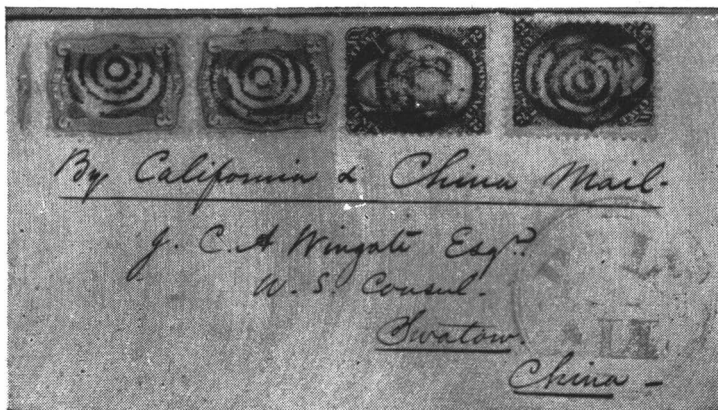 By California & China Mail-
J. C. A Wingate Esqr.
U. S. Consul.
Swatow.
China -